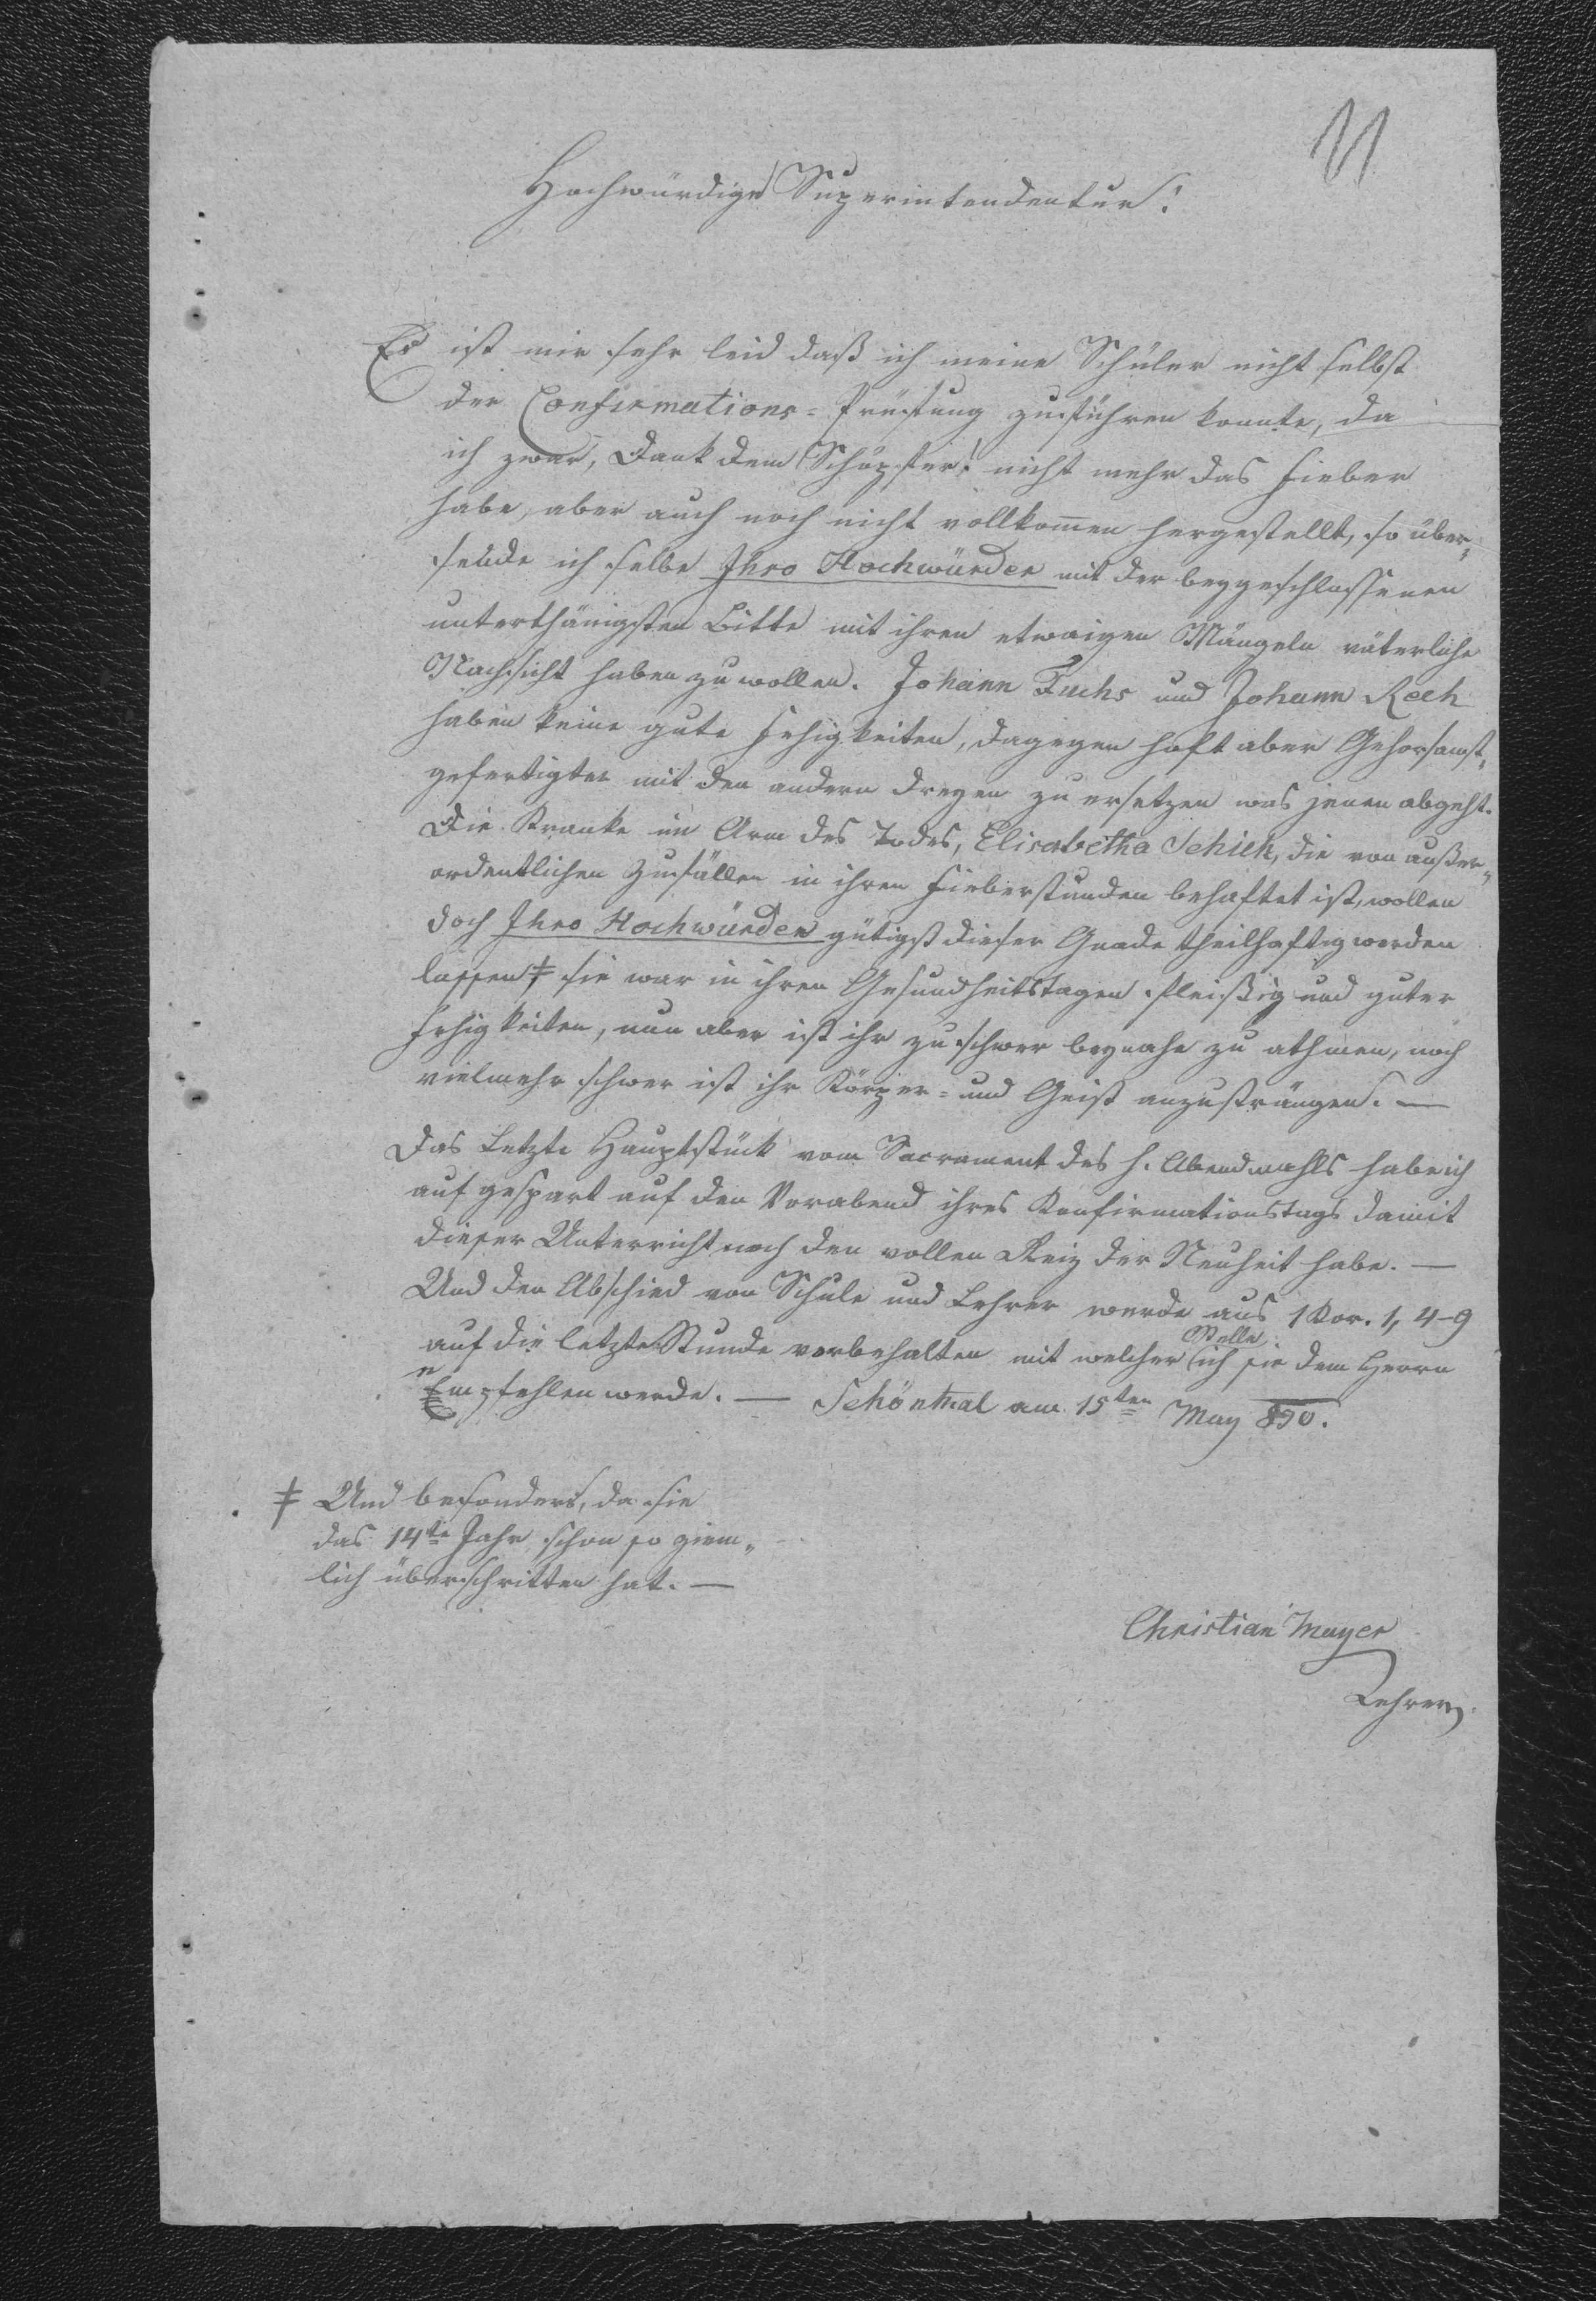 11
Hochwürdige Superintendentur!
Es ist mir sehr leid daß ich meine Schüler nicht selbst
der Confirmations=Prüfung zuführen konnte, da
ich zwar, Dank dem Schöpfer! nicht mehr das Fieber
habe, aber auch noch nicht vollkom̅en hergestellt, so über„
sende ich selbe Ihro Hochwürden mit der beygeschlossenen
unterthänigsten Bitte mit ihren etwaigen Mängeln väterliche
Nachsicht haben zu wollen. Johann Fuchs und Johann Rech
haben keine gute Fehigkeiten, dagegen hoft aber Gehorsamst„
gefertigter mit den andern dreyen zu ersetzen was jenen abgeht.
Die Kranke im Arm des Todes, Elisabetha Schick, die von außer„
ordentlichen Zufällen in ihren Fieberstunden behaftet ist, wollen
doch Ihro Hochwürden gütigst dieser Gnade theilhaftig werden
lassen ‡ sie war in ihren Gesundheitstagen fleißig und guter
Fehigkeiten, nun aber ist ihr zu schwer beynahe zu athmen, noch
vielmehr schwer ist ihr Körper= und Geist anzusträngen. —
Das Letzte Hauptstück vom Sacrament des h. Abendmahls habe ich
auf gespart auf den Vorabend ihres Konfirmationstags damit
dieser Unterricht noch den vollen Reiz der Neuheit habe. —
Und den Abschied von Schule und Lehrer werde aus 1 Kor. 1, 4-9
auf die letzte Stunde vorbehalten mit welcher Stelle ich sie dem Herrn
empfehlen werde. — Schönthal am 15ten May 850.
‡ Und besonders, da sie
das 14te Jahr schon so ziem„
lich überschritten hat. —
Christian Mayer
Lehrer